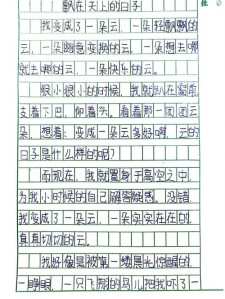 飘在天上的日子
我变成了一朵云，一朵轻飘飘的
云，一朵随意变换的云，一朵想去哪
就去哪的云，一朵快乐的云。
很小很小的时候，我就趴在窗前，
支着下巴，仰着头，看着那一团团云
朵，想着：变成一朵云多好啊，云的
日子是什么样的呢？
而现在，我就置身于高空之中，
为我小时候的自己解答疑惑。没错，
我变成了一朵云，一朵实实在在的、
真真切切的云。
我好像是被第一缕晨光惊醒的，
一睁眼，一只飞翔的鸟儿把我吓了一